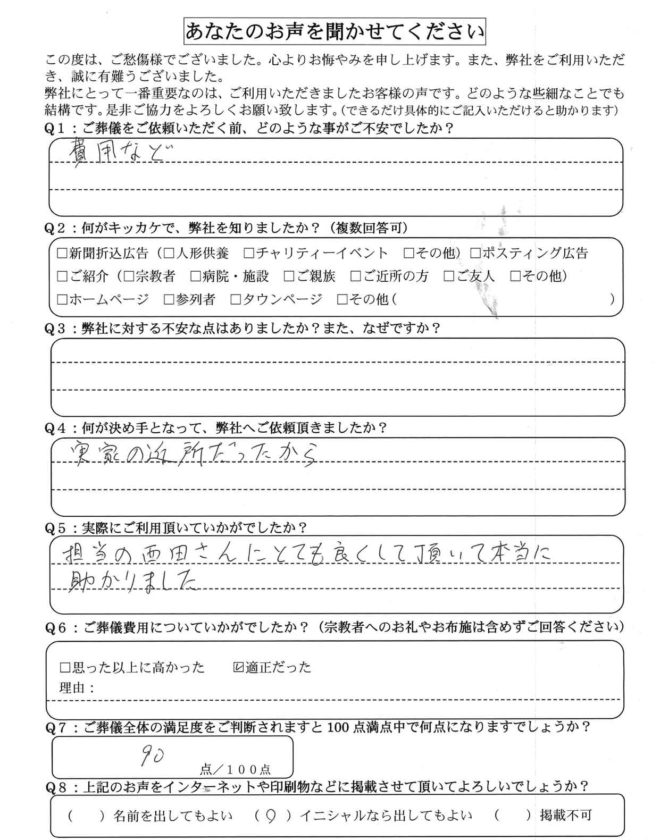 あなたのお声を聞かせてください
この度は、ご愁傷様でございました。心よりお悔やみを申し上げます。また、弊社をご利用いただ
き、誠に有難うございました。
弊社にとって一番重要なのは、ご利用いただきましたお客様の声です。どのような些細なことでも
結構です。是非ご協力をよろしくお願い致します。(できるだけ具体的にご記入いただけると助かります)
Q1:ご葬儀をご依頼いただく前、どのような事がご不安でしたか?
費用など
Q2:何がキッカケで、弊社を知りましたか?(複数回答可)
□新聞折込広告(□人形供養 □チャリティーイベント □その他)□ポスティング広告
□ご紹介(□宗教者 □病院・施設 □ご親族 □ご近所の方 □ご友人 □その他)
□ホームページ □参列者 □タウンページ □その他( )
Q3:弊社に対する不安な点はありましたか?また、なぜですか?
Q4:何が決め手となって、弊社へご依頼頂きましたか?
実家の近所だったから
Q5:実際にご利用頂いていかがでしたか?
担当の西田さんにとても良くして頂いて本当に
助かりました
Q6:ご葬儀費用についていかがでしたか?(宗教者へのお礼やお布施は含めずご回答ください)
□思った以上に高かった ☑適正だった
理由:
Q7:ご葬儀全体の満足度をご判断されますと100点満点中で何点になりますでしょうか?
90 点/100点
Q8:上記のお声をインターネットや印刷物などに掲載させて頂いてよろしいでしょうか?
( )名前を出してもよい (○)イニシャルなら出してもよい ( )掲載不可